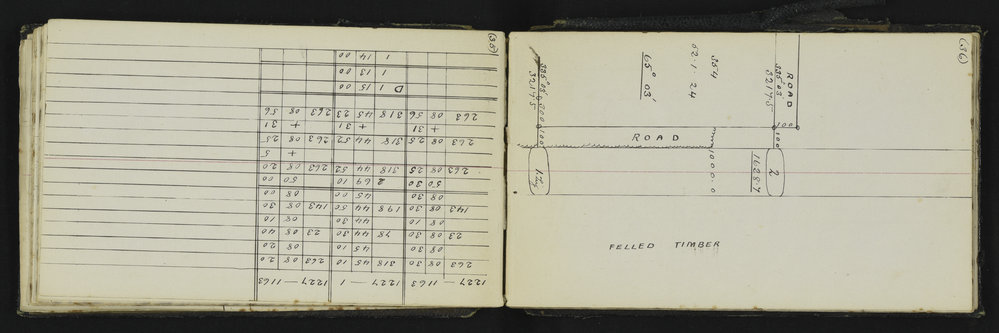 (35)
1227 — 1163 1227 — 1 1227 — 1163
263 08 30 318 45 10 263 08 20
08 30 45 10 08 20
23 08 30 78 44 30 23 08 40
08 10 44 30 08 10
143 08 30 198 44 50 143 08 30
08 30 45 00 08 00
50 30 2 69 10 50 00
263 08 25 318 44 52 263 08 20
+ 5
263 08 25 318 44 52 263 08 25
+ 31 + 31 + 31
263 08 56 318 45 23 263 08 56
D 1 15 00
1 13 00
1 14 00
(36)
ROAD
335° 03'
3217·5
100
100
2
1628·7
354
02·1·24
65° 03'
ROAD
10000·0
335° 05'
3217·5
200
100
FELLED TIMBER